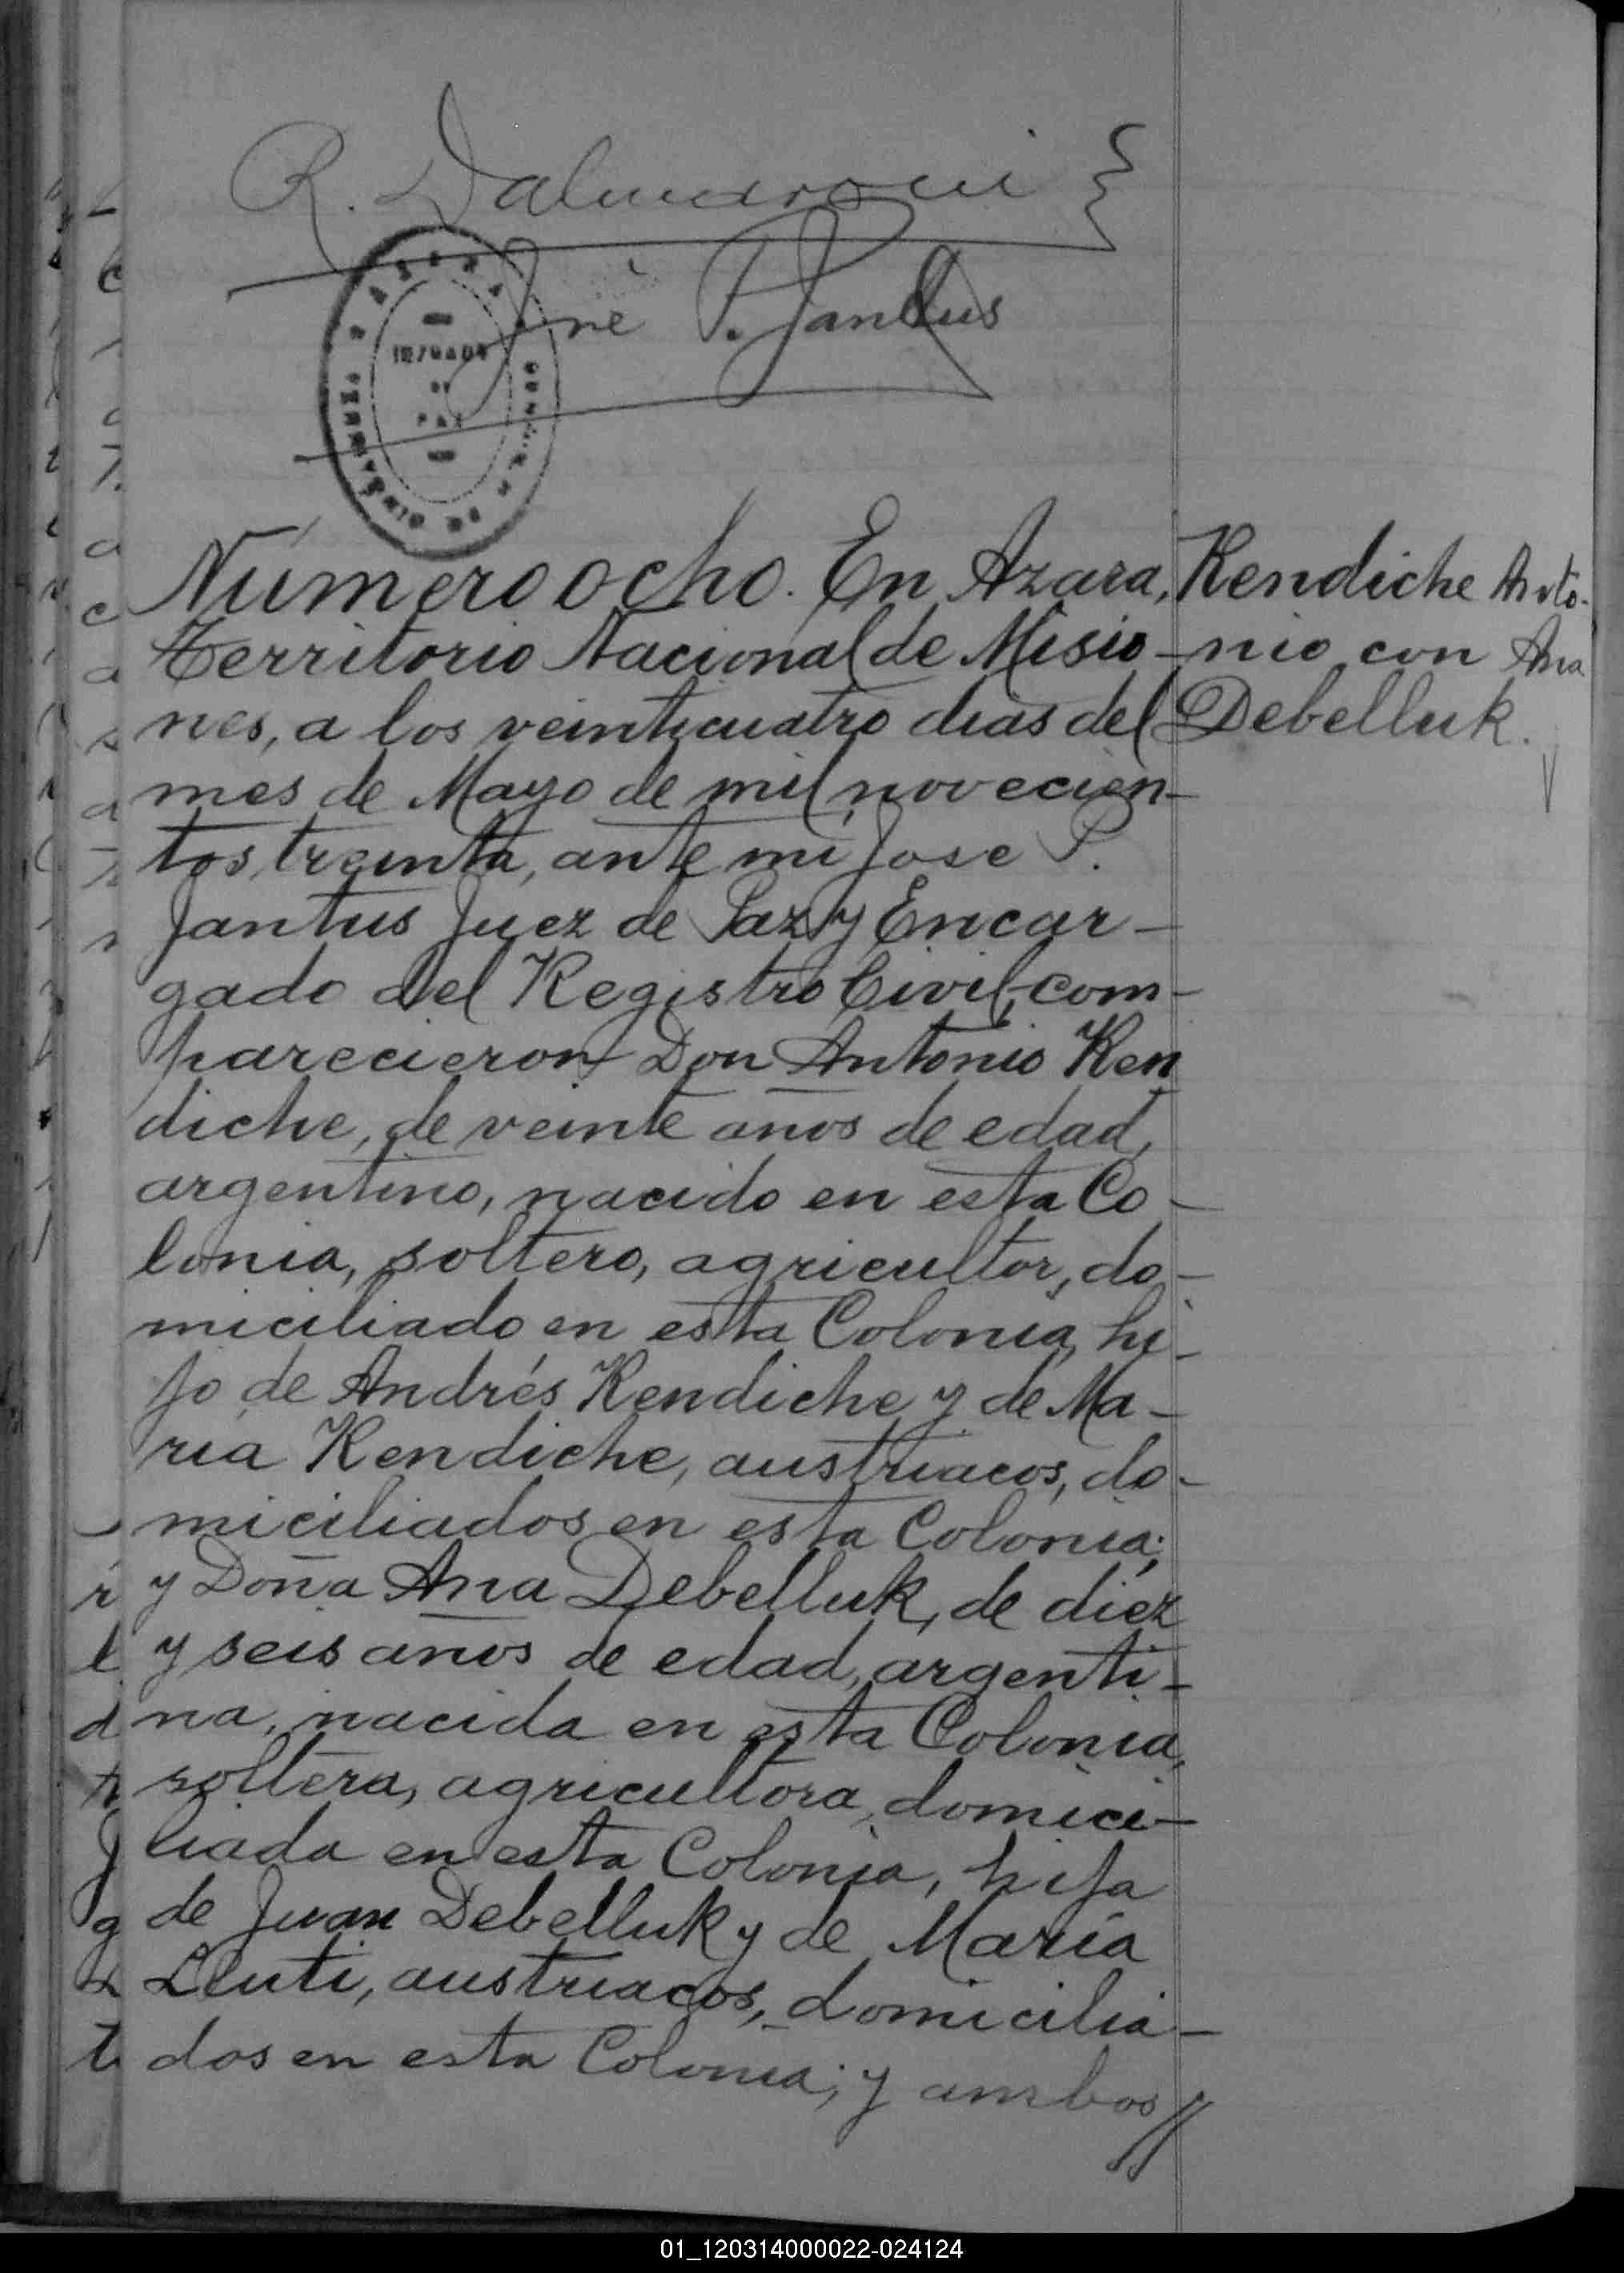 R. Dalmaroni
José P. Jantus
JUZGADO
DE
PAZ
Número ocho. En Azara,
Territorio Nacional de Misio-
nes, a los veinticuatro dias del
mes de Mayo de mil novecien-
tos treinta, ante mi Jose P.
Jantus Juez de Paz y Encar-
gado del Registro Civil, com-
parecieron Don Antonio Ken
diche, de veinte años de edad,
argentino, nacido en esta Co-
lonia, soltero, agricultor, do-
miciliado en esta Colonia, hi-
jo de Andrés Kendiche y de Ma-
ria Kendiche, austriacos, do-
miciliados en esta Colonia;
y Doña Ana Debelluk, de diez
y seis años de edad, argenti-
na, nacida en esta Colonia,
soltera, agricultora, domici-
liada en esta Colonia, hija
de Juan Debelluk y de María
Lluti, austriacos, domicilia-
dos en esta Colonia; y ambos //
Kendiche Anto-
nio con Ana
Debelluk.
01_120314000022-024124